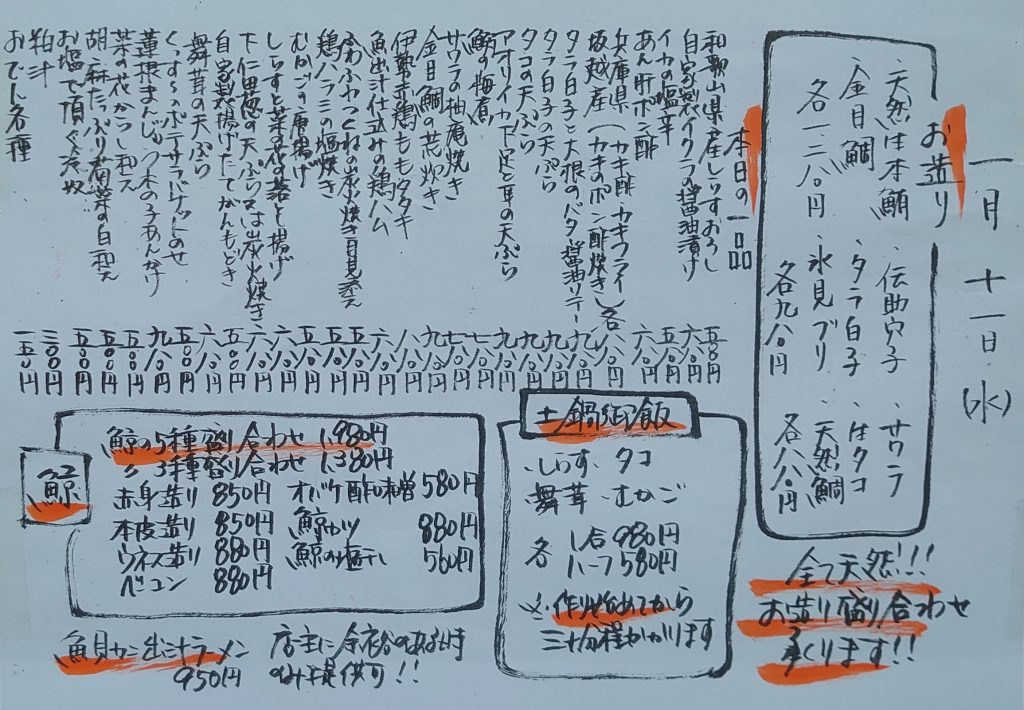 一月十一日(水)
お造り
・天然生本鮪
・金目鯛
各一二八〇円
・伝助穴子
・タラ白子
・氷見ブリ
各九八〇円
・サワラ
・生タコ
・天然鯛
各八八〇円
全て天然!!!
お造り盛り合わせ
承ります!!
本日の一品
和歌山県産しらすおろし 五八〇円
自家製イクラ醤油漬け 六八〇円
イカの塩辛 五〇〇円
あん肝ポン酢
兵庫県
坂越産(カキ酢・カキフライ カキのポン酢焼き)各
タラ白子と大根のバター醤油ソテー
タラ白子の天ぷら
タコの天ぷら
アオリイカ下足と耳の天ぷら
鰯の梅煮
サワラの柚庵焼き
金目鯛の荒炊き
伊勢赤鶏ももタタキ
魚出汁仕込みの鶏ハム
ふわふわつくねの炭火焼き 月見添え
鶏ハラミの塩焼き
むかごの唐揚げ
しらすと菜の花の落とし揚げ
下仁田葱の天ぷら又は炭火焼き
自家製揚げたてがんもどき
舞茸の天ぷら
蓮根まんじゅう 木の子あんかけ
菜の花からし和え
胡麻たっぷり 菊菜の白和え
お塩で頂く冷奴
粕汁 三〇〇円
おでん各種 一五〇円
土鍋御飯
・しらす・タコ
・舞茸・むかご
各 1合 980円
ハーフ 580円
※作り始めてから
三十分程かかります
鯨
鯨の5種盛り合わせ 1,980円
〃 3種盛り合わせ 1,380円
赤身造り 850円 オバケ酢味噌 580円
本皮造り 850円 鯨カツ 880円
ウネス造り 880円 鯨の塩干し 560円
ベーコン 880円
魚貝カニ出汁ラーメン
950円
店主に余裕のある時
のみ提供可!!